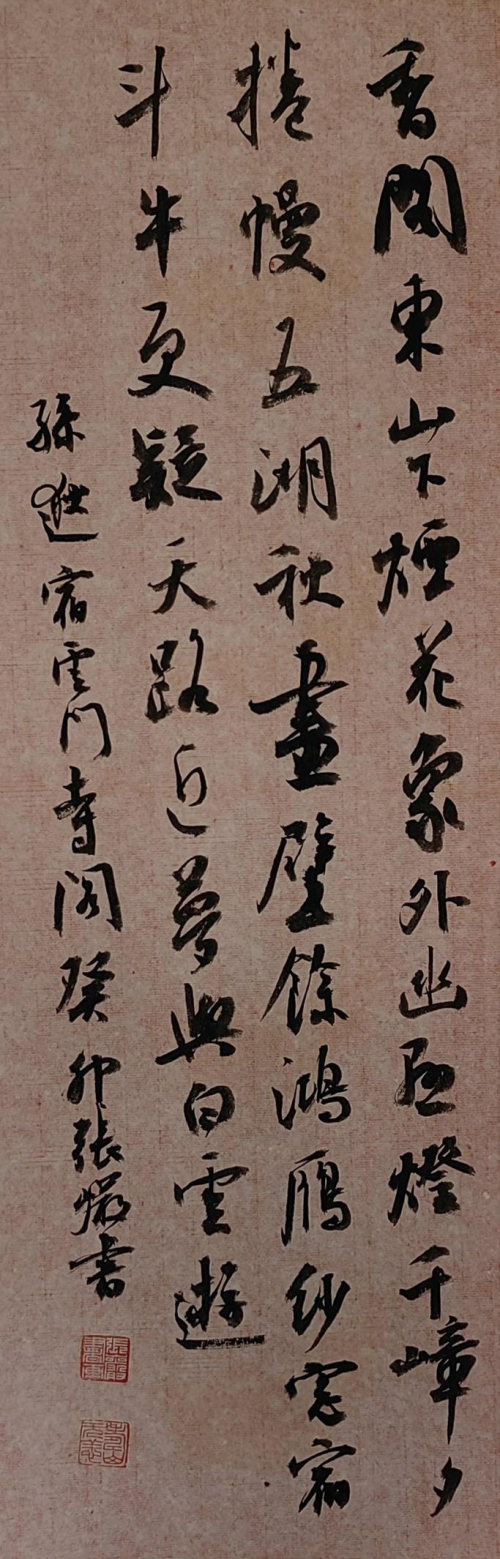 香閣東山下煙花象外幽懸燈千嶂夕
捲幔五湖秋畫壁餘鴻鴈紗窓宿
斗牛更疑天路近夢與白雲遊
孫逖宿雲門寺閣癸卯張書